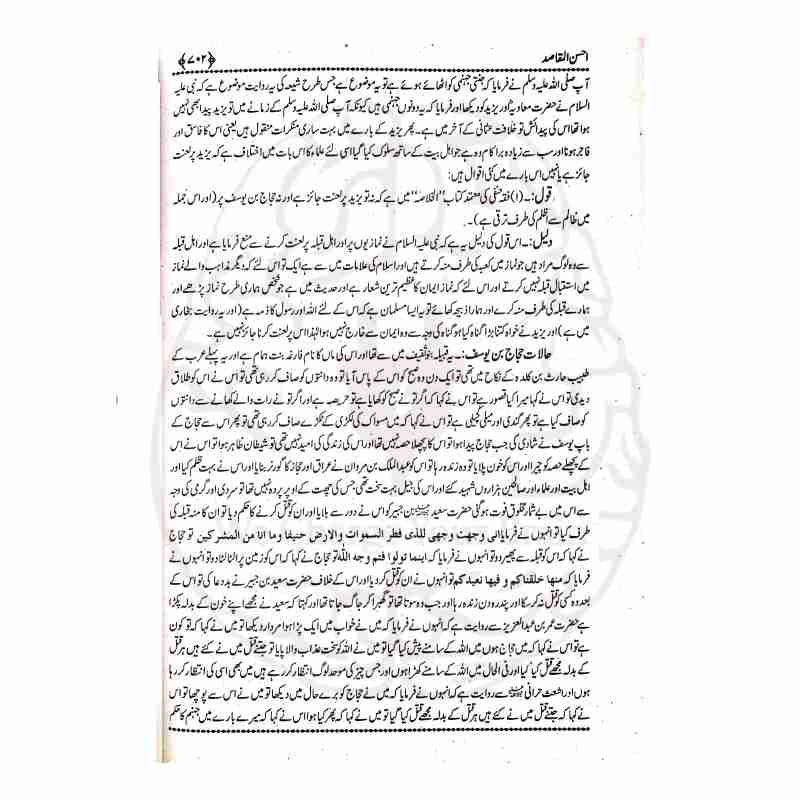 احسن المقاصد ﴿۷۰۲﴾
آپ صلی اللہ علیہ وسلم نے فرمایا کہ جنتی جہنمی کو اٹھائے ہوئے ہے تو یہ موضوع ہے جس طرح شیعہ کی یہ روایت موضوع ہے کہ نبی علیہ
السلام نے حضرت معاویہؓ اور یزید کو دیکھا اور فرمایا کہ یہ دونوں جہنمی ہیں کیونکہ آپ صلی اللہ علیہ وسلم کے زمانے میں تو یزید پیدا بھی نہیں
ہوا تھا اس کی پیدائش تو خلافت عثمانی کے آخر میں ہے۔ پھر یزید کے بارے میں بہت ساری منکرات منقول ہیں یعنی اس کا فاسق اور
فاجر ہونا اور سب سے زیادہ برا کام وہ ہے جو اہل بیت کے ساتھ سلوک کیا گیا اسی لئے علماء کا اس بات میں اختلاف ہے کہ یزید پر لعنت
جائز ہے یا نہیں اس بارے میں کئی اقوال ہیں:
قول:۔ (۱) فقہ حنفی کی معتمد کتاب ''الخلاصہ'' میں ہے کہ نہ تو یزید پر لعنت جائز ہے اور نہ حجاج بن یوسف پر (اور اس جملہ
میں ظالم سے اظلم کی طرف ترقی ہے)۔
دلیل:۔ اس قول کی دلیل یہ ہے کہ نبی علیہ السلام نے نمازیوں پر اور اہل قبلہ پر لعنت کرنے سے منع فرمایا ہے اور اہل قبلہ
سے وہ لوگ مراد ہیں جو نماز میں کعبہ کی طرف منہ کرتے ہیں اور اسلام کی علامات میں سے ہے ایک تو اس لئے کہ دیگر مذاہب والے نماز
میں استقبال قبلہ نہیں کرتے اور اس لئے کہ نماز ایمان کا عظیم ترین شعار ہے اور حدیث میں ہے جو شخص ہماری طرح نماز پڑھے اور
ہمارے قبلہ کی طرف منہ کرے اور ہمارا ذبیحہ کھائے تو یہ ایسا مسلمان ہے کہ اس کے لئے اللہ اور رسول کا ذمہ ہے (اور یہ روایت بخاری
میں ہے) اور یزید نے خواہ کتنا بڑا گناہ کیا ہو گناہ کی وجہ سے وہ ایمان سے خارج نہیں ہوا لہٰذا اس پر لعنت کرنا جائز نہیں ہے۔
حالات حجاج بن یوسف:۔ یہ قبیلہ بنو ثقیف میں سے تھا اور اس کی ماں کا نام فارعہ بنت ہمام ہے اور یہ پہلے عرب کے
طبیب حارث بن کلدہ کے نکاح میں تھی تو ایک دن وہ صبح کو اس کے پاس آیا تو وہ دانتوں کو صاف کر رہی تھی تو اس نے اس کو طلاق
دیدی تو اس نے کہا میرا کیا قصور ہے تو اس نے کہا کہ اگر تو نے صبح کو کھایا ہے تو حریصہ ہے اور اگر تو نے رات والے کھانے سے دانتوں
کو صاف کیا ہے تو پھر گندی اور میلی کچیلی ہے تو اس نے کہا کہ میں مسواک کی لکڑی کے ٹکڑے صاف کر رہی تھی تو پھر اس سے حجاج کے
باپ یوسف نے شادی کی جب حجاج پیدا ہوا تو اس کا پچھلا حصہ نہیں تھا اور اس کی زندگی کی امید نہیں تھی تو شیطان ظاہر ہوا تو اس نے اس
کے پچھلے حصہ کو چیرا اور اس کو خون پلایا تو وہ زندہ رہا تو اس کو عبدالملک بن مروان نے عراق اور حجاز کا گورنر بنایا اور اس نے بہت ظلم کیا اور
اہل بیت اور علماء اور صالحین ہزاروں شہید کئے اور اس کی جیل بہت سخت تھی جس کی چھت کے اوپر پردہ نہیں تھا تو سردی اور گرمی کی وجہ
سے اس میں بے شمار مخلوق فوت ہو گئی حضرت سعید بن جبیر کو اس نے دور سے بلایا اور ان کو قتل کرنے کا حکم دیا تو ان کا منہ قبلہ کی
طرف کیا تو انہوں نے فرمایا انی وجهت وجهی للذی فطر السموات والارض حنیفا وما انا من المشرکین تو حجاج
نے کہا کہ اس کو قبلہ سے پھیر دو تو انہوں نے فرمایا کہ اینما تولوا فثم وجه اللّٰه تو حجاج نے کہا کہ اس کو زمین پر الٹا لٹا دو تو انہوں نے
فرمایا کہ منها خلقناکم و فیها نعیدکم تو انہوں نے ان کو قتل کر دیا اور اس کے خلاف حضرت سعید بن جبیر نے بددعا کی تو اس کے
بعد وہ کسی کو قتل نہ کر سکا اور پندرہ دن زندہ رہا اور جب وہ سوتا تھا تو گھبرا کر جاگ جاتا تھا اور کہتا کہ سعید نے مجھے اپنے خون کے بدلہ پکڑا
ہے حضرت عمر بن عبدالعزیز سے روایت ہے کہ انہوں نے فرمایا کہ میں نے خواب میں ایک پڑا ہوا مردار دیکھا تو میں نے کہا کہ تو کون
ہے تو اس نے کہا کہ میں حجاج ہوں میں اللہ کے سامنے پیش کیا گیا تو میں نے اللہ کو سخت عذاب والا پایا تو جتنے قتل میں نے کئے ہیں ہر قتل
کے بدلہ مجھے قتل کیا گیا اور فی الحال میں اللہ کے سامنے کھڑا ہوں اور جس چیز کی موحد لوگ انتظار کر رہے ہیں میں بھی اسی کی انتظار کر رہا
ہوں اور اشعث حرانی سے روایت ہے کہ انہوں نے فرمایا کہ میں نے حجاج کو برے حال میں دیکھا تو میں نے اس سے پوچھا تو اس
نے کہا کہ جتنے قتل میں نے کئے ہیں ہر قتل کے بدلہ مجھے قتل کیا گیا تو میں نے کہا کہ پھر کیا ہوا اس نے کہا کہ میرے بارے میں جہنم کا حکم